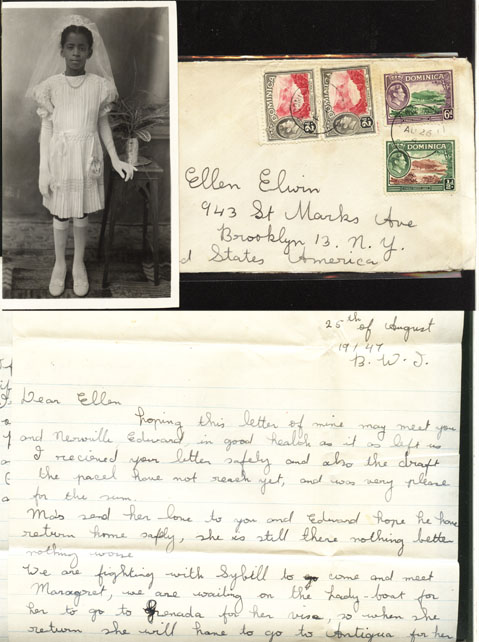 DOMINICA
DOMINICA
DOMINICA
6D
AU 26
DOMINICA
Ellen Elwin
943 St Marks Ave
Brooklyn 13. N. Y.
d States America
25th of August
19/47
B. W. I.
Dear Ellen
hoping this letter of mine may meet you
and Edward in good health as it as left us
I recieved your letter safely and also the draft
the pacel have not reach yet, and was very please
for the sum.
Ma's send her love to you and Edward hope he have
return home safly, she is still there nothing better
nothing worse
We are fighting with Sybill to go come and meet
Maragret, we are waiting on the Lady-boat for
her to go to Grenada for her visa, so when she
return she will have to go to Antigua for her